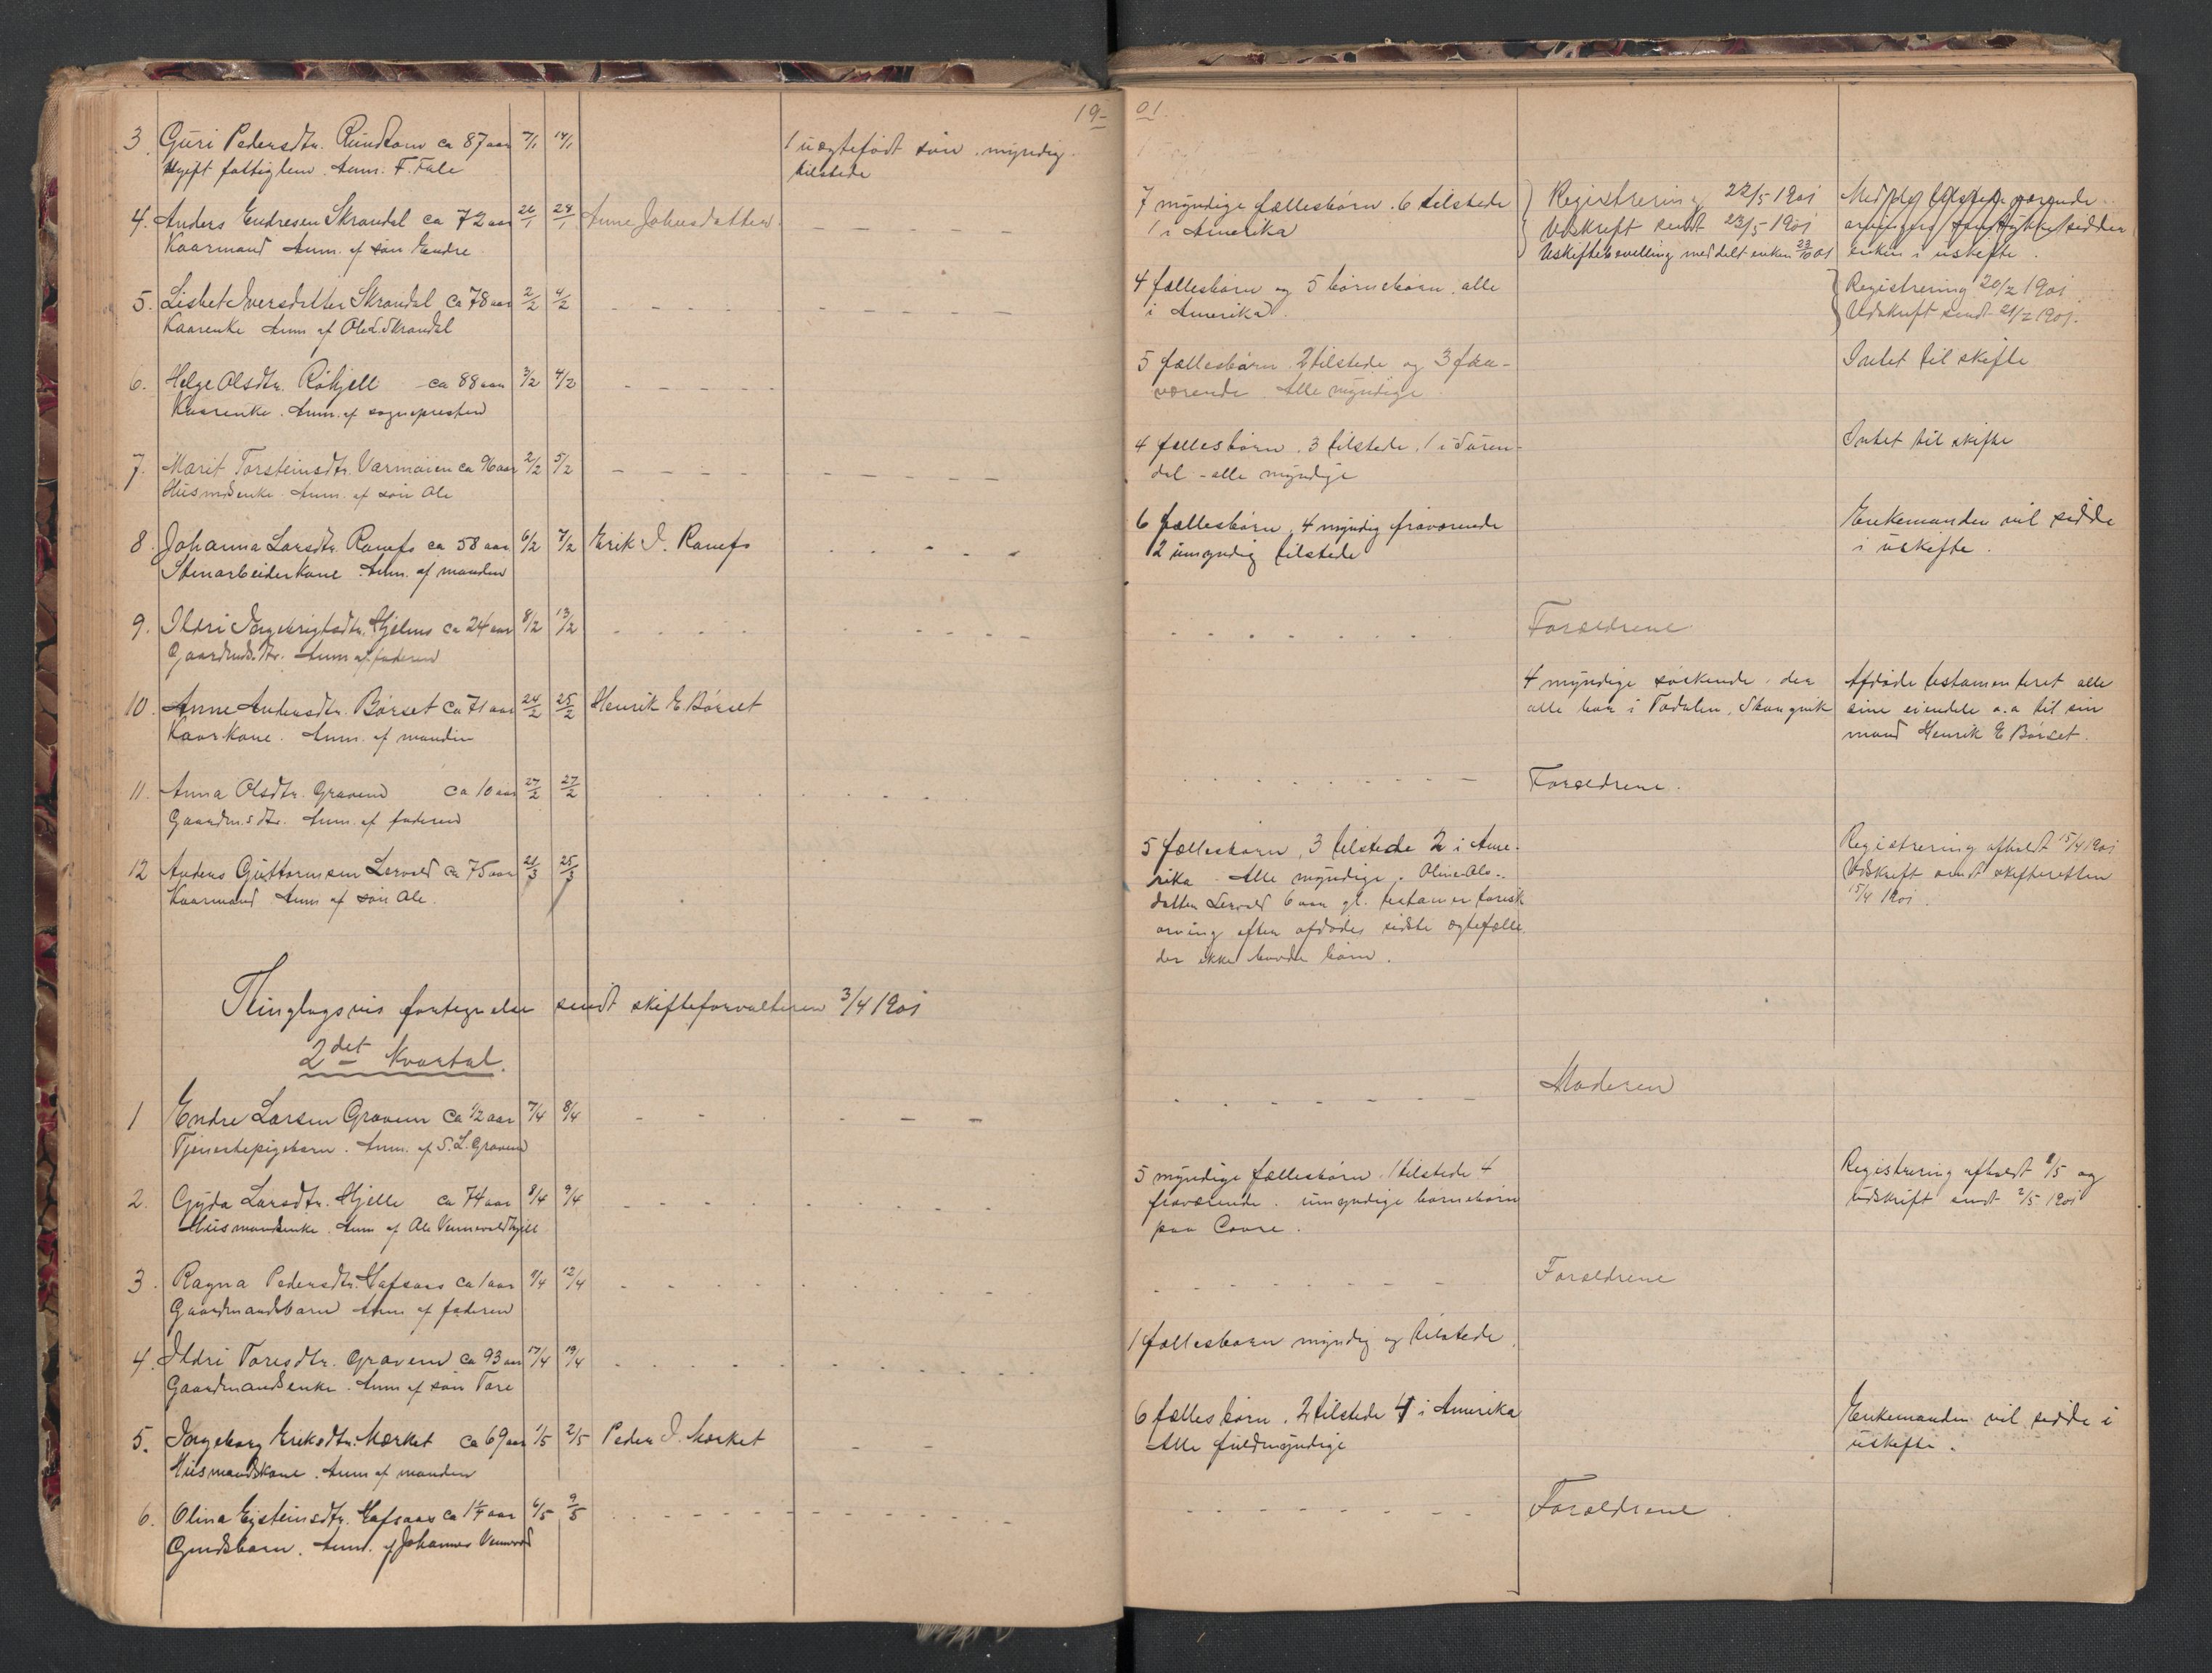 19-
01.
3. Guri Pedersdtr. Rundtom ca 87 aar 7/1 14/1 1 uægtefødt søn. myndig
Ugift fattiglem. Anm. F. Fale tilstede
4. Anders Endresen Skrondal ca 72 aar 26/1 29/1 Anne Johnsdatter - - - - -
7 myndige fællesbørn. 6 tilstede Registrering 22/5-1901
Kaarmand Anm. af søn Endre
1 i Amerika Udskrift sendt 23/5-1901
Uskiftebevilling meddelt enken 23/10 01 enken i uskifte.
5. Lisbet Iversdatter Skrondal ca 78 aar 2/2 4/2 - - - - -
4 fællesbørn og 5 børnebørn. alle Registrering 20/2 1901
Kaarenke Anm. af Ole L Skrondal
i Amerika. Udskrift sendt 21/2 1901.
6. Helge Olsdtr. Røhjell - ca 88 aar 3/2 4/2 - - - - -
5 fællesbørn 2 tilstede og 3 fra- Intet til skifte
Kaarenke. Anm. af sognepresten
værende. Alle myndige
7. Marit Torsteinsdtr. Varmøien ca 96 aar 2/2 5/2 - - - - -
4 fællesbørn. 3 tilstede, 1 i Suren- Intet til skifte
Husmdsenke. Anm. af søn Ole
dal - alle myndige
8. Johanna Larsdtr. Romfo ca 58 aar 6/2 7/2 Erik I. Romfo - - - -
6 fællesbørn, 4 myndig fraværende Enkemanden vil sidde
Stenarbeiderkone. Anm. af manden
2 umyndig tilstede i uskifte.
9. Ildri Ingebrigtsdtr. Hjelms ca 24 aar 8/2 13/2 - - - -
- - - - - Forældrene
Gaardmds.dtr. Anm. af faderen
10. Anne Andersdtr. Børset ca 71 aar 24/2 25/2 Henrik E Børset
4 myndige søskende. der Afdøde testamenteret alle
Kaarkone. Anm. af manden
alle bor i Todalen, Stangvik sine eiendele o.a til sin
mand Henrik E Børset.
11. Anna Olsdtr. Gravem ca 10 aar 27/2 27/2 - - - - -
- - - - - Forældrene.
Gaardm.s dtr. Anm. af faderen
12 Anders Guttormsen Lervold ca 75 aar 21/3 25/3
5 fællesbørn, 3 tilstede 2 i Ame- Registrering afholdt 15/4 1901
Kaarmand Anm af søn Ole.
rika. Alle myndige. Oline Ols- Udskrift sendt skifteretten
datter Lervold 6 aar gl. testamentarisk 15/4 1901.
arving efter afdødes sidste ægtefælle
der ikke havde børn.
Thinglagsvis fortegnelse sendt skifteforvalteren 3/4 1901
2det Kvartal.
1 Endre Larsen Gravem ca 1/2 aar 7/4 8/4 - - - -
- - - - - Moderen
Tjenestepigebarn. Anm. af S. L. Gravem
2. Gyda Larsdtr. Hjelle ca 74 aar 8/4 9/4 - - - -
5 myndige fællesbørn. 1 tilstede 4 Registrering afholdt 2/5 og
Husmandsenke. Anm af Ole Vennevoldhjell
fraværende. umyndige børnebørn udskrift sendt 2/5 1901
paa
3. Ragna Pedersdtr. Hafsaas ca 1 aar 9/4 12/4 - - - -
- - - - - Forældrene
Gaardmandsbarn Anm af faderen
4. Ildri Toresdtr. Gravem ca 93 aar 17/4 19/4 - - - -
1 fællesbarn myndig og tilstede.
Gaardmandsenke. Anm af søn Tore
5. Ingeborg Eriksdtr. Mørket ca 69 aar 1/5 2/5 Peder I. Mørket - -
6 fællesbørn. 2 tilstede 4 i Amerika Enkemanden vil sidde i
Husmandskone. Anm af manden
Alle fuldmyndige uskifte.
6. Olina Eysteinsdtr. Hafsaas ca 1 1/4 aar 6/5 9/5 - - - - -
- - - - - Forældrene.
Gmdsbarn. Anm. af Johannes Vennevold